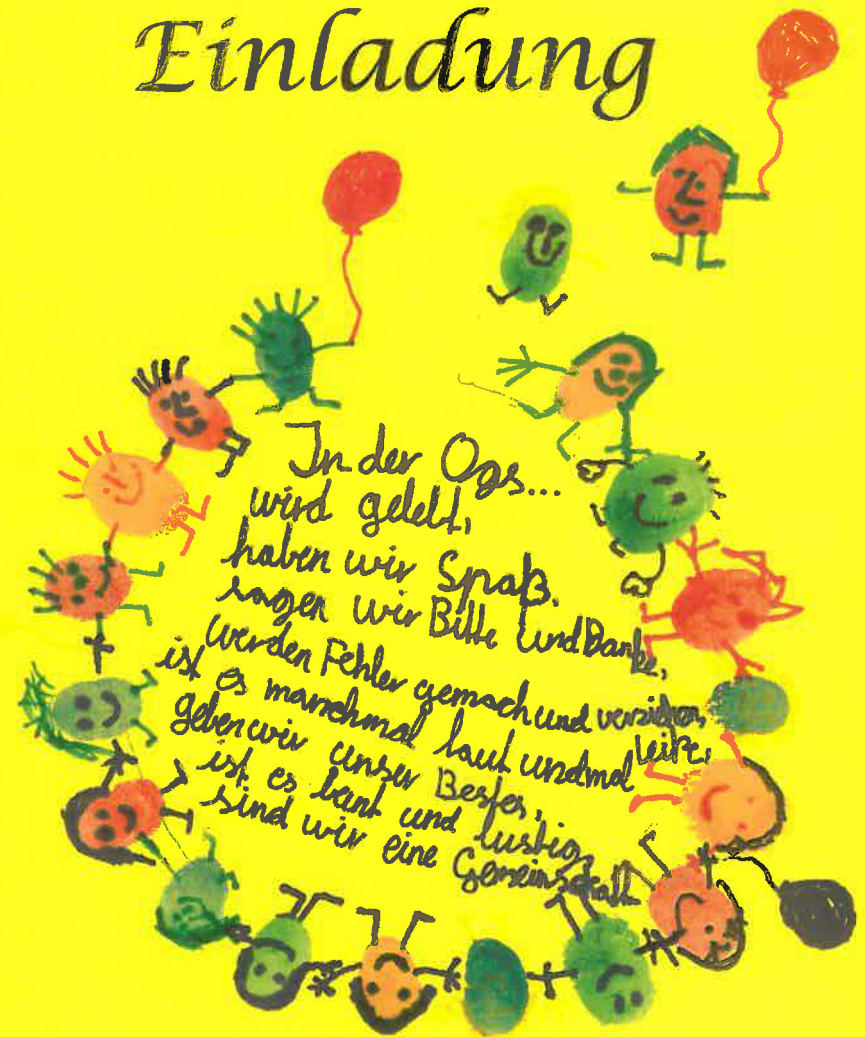 Einladung
In der Ogs...
wird gelebt,
haben wir Spaß,
sagen wir Bitte und Danke,
werden Fehler gemach und verziehen,
ist es manchmal laut und mal leise,
geben wir unser Bestes,
ist es bunt und lustig,
sind wir eine Gemeinschaft